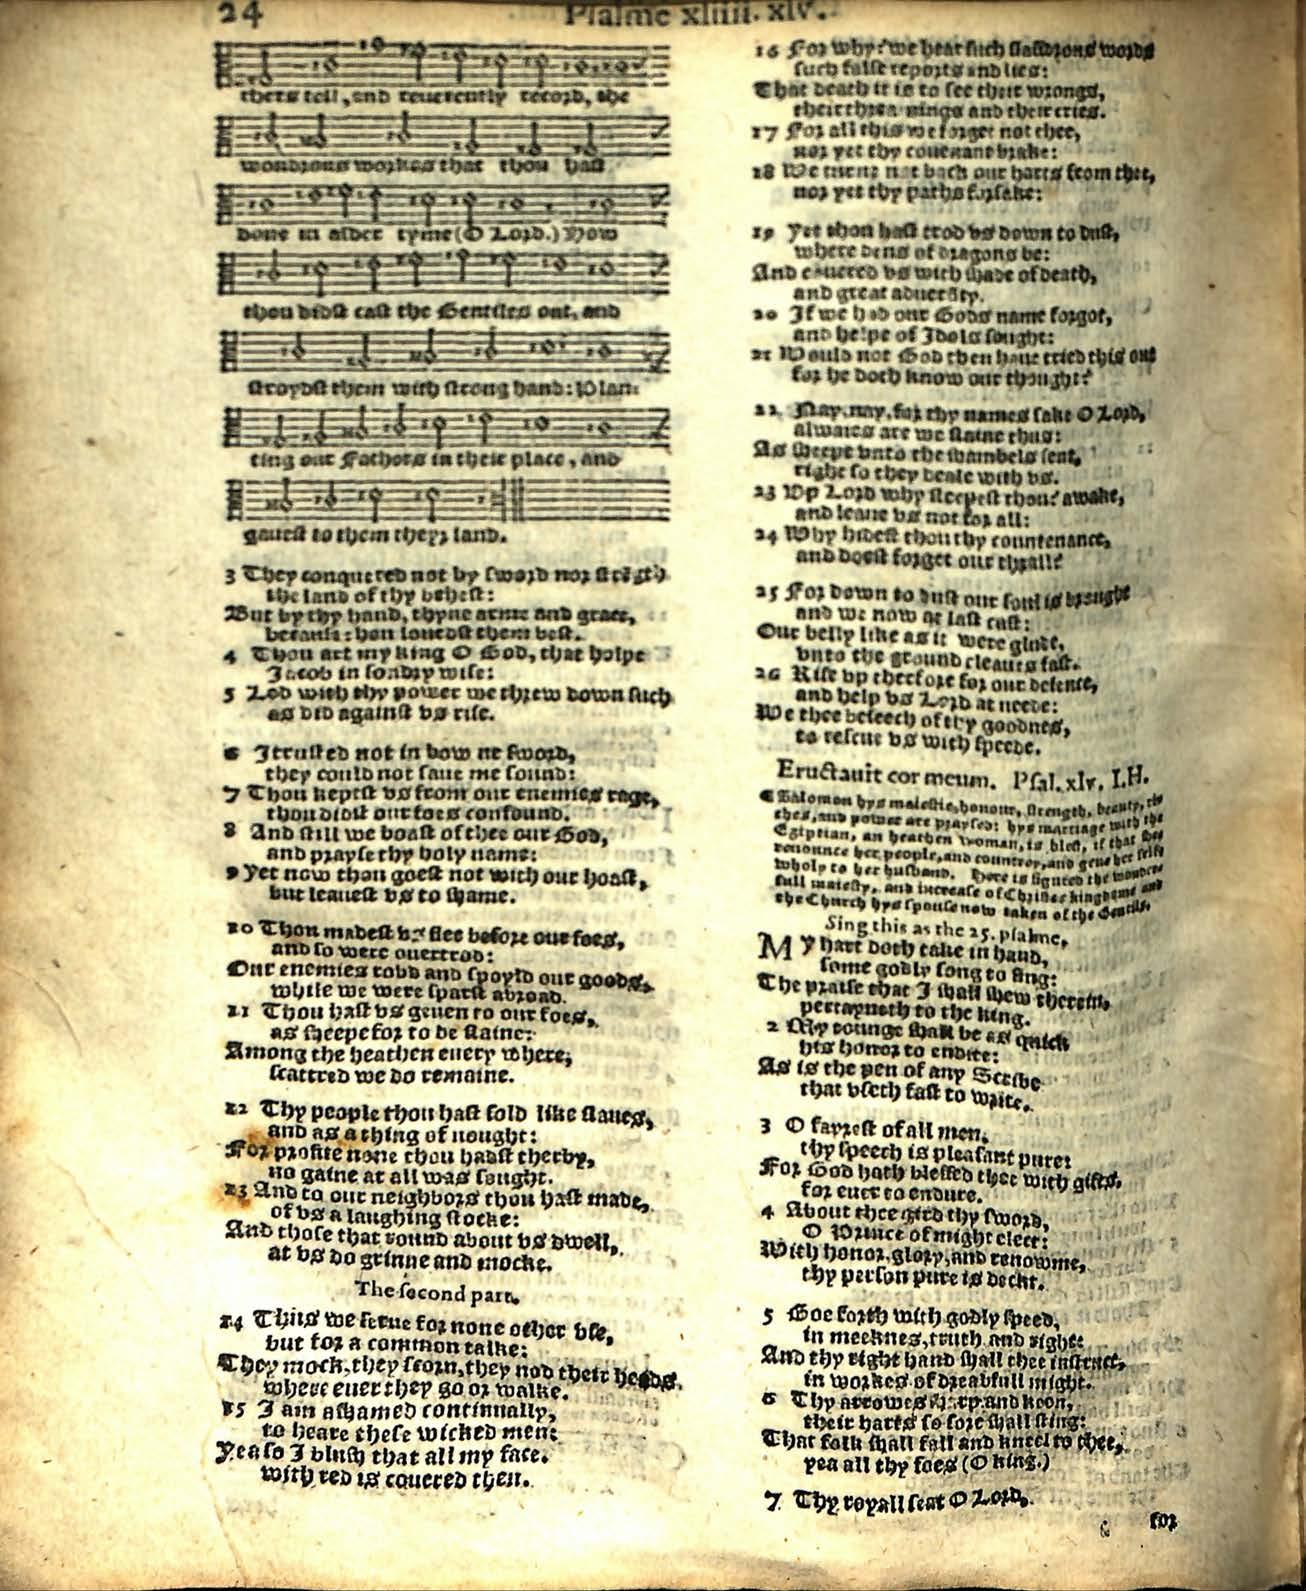 24 Psalme xliiii. xlv.
thers tell, and reuerently record, the
wondrous workes that thou hast
done in alder tyme (O Lord.) How
thou didst cast the Gentiles out, and
stroydst them with strong hand: Plan-
ting our Fathers in their place, and
gauest to them theyr land.
3 They conquered not by sword nor strēgth
the land of thy behest:
But by thy hand, thyne arme and grace,
because thou louedst them best.
4 Thou art my king O God, that holpe
Jacob in sondry wise:
5 Led with thy power we threw down such
as did against vs rise.
6 I trusted not in bow ne sword,
they could not saue me sound:
7 Thou keptst vs from our enemies rage,
thou didst our foes confound.
8 And still we boast of thee our God,
and prayse thy holy name:
9 Yet now thou goest not with our hoast,
but leauest vs to shame.
10 Thou madest vs flee before our foes,
and so were ouertrod:
Our enemies robd and spoyld our goods,
while we were sparst abroad.
11 Thou hast vs geuen to our foes,
as sheepe for to be slaine:
Among the heathen euery where,
scattred we do remaine.
12 Thy people thou hast sold like slaues,
and as a thing of nought:
For profite none thou hadst therby,
no gaine at all was sought.
13 And to our neighbors thou hast made,
of vs a laughing stocke:
And those that round about vs dwell,
at vs do grinne and mocke.
The second part.
14 Thus we serue for none other vse,
but for a common talke:
They mock, they scorn, they nod their heads,
where euer they go or walke.
15 I am ashamed continually,
to heare these wicked men:
Yea so I blush that all my face.
with red is couered then.
16 For why? we hear such slaūdrous words
such false reports and lies:
That death it is to see their wrongs,
their threatnings and their cries.
17 For all this we forget not thee,
nor yet thy couenant brake:
18 We turne not back our harts from thee,
nor yet thy paths forsake:
19 Yet thou hast trod vs down to dust,
where dens of dragons be:
And couered vs with shade of death,
and great aduersity.
20 If we had our Gods name forgot,
and helpe of Idols sought:
21 Would not God then haue tried this out
for he doth know our thought?
22 Nay, nay, for thy names sake O Lord,
alwaies are we slaine thus:
As sheepe vnto the shambels sent,
right so they deale with vs.
23 Vp Lord why sleepest thou? awake,
and leaue vs not for all:
24 Why hidest thou thy countenance,
and doest forget our thrall?
25 For down to dust our soul is brought
and we now at last cast:
Our belly like as it were glude,
vnto the ground cleaues fast.
26 Rise vp therfore for our defence,
and help vs Lord at neede:
We thee beseech of thy goodnes,
to rescue vs with speede.
Eructauit cor meum. Psal. xlv. I.H.
¶ Salomon hys maiestie, honour, strength, beauty, ri-
ches, and power are praysed: hys marriage with the
Egiptian, an heathen woman, is blest, if that shee
renounce her people, and countrey, and geue her selfe
wholy to her husband. Here is figured the wonder-
full maiesty, and increase of Christes kingdome and
the Church hys spouse now taken of the Gentils.
Sing this as the 25. psalme.
MY hart doth take in hand,
some godly song to sing:
The praise that I shall shew therein,
pertayneth to the king.
2 My tounge shall be as quick
his honor to endite:
As is the pen of any Scribe
that vseth fast to write.
3 O fayrest of all men,
thy speech is pleasant pure:
For God hath blessed thee with gifts,
for euer to endure.
4 About thee gird thy sword,
O Prince of might elect:
With honor, glory, and renowme,
thy person pure is deckt.
5 Goe forth with godly speed,
in meeknes, truth and right:
And thy right hand shall thee instruct,
in workes of dreadfull might.
6 Thy arrowes sharp and keen,
their harts so sore shall sting:
That folk shall fall and kneel to thee,
yea all thy foes (O king.)
7 Thy royall seat O Lord,
for